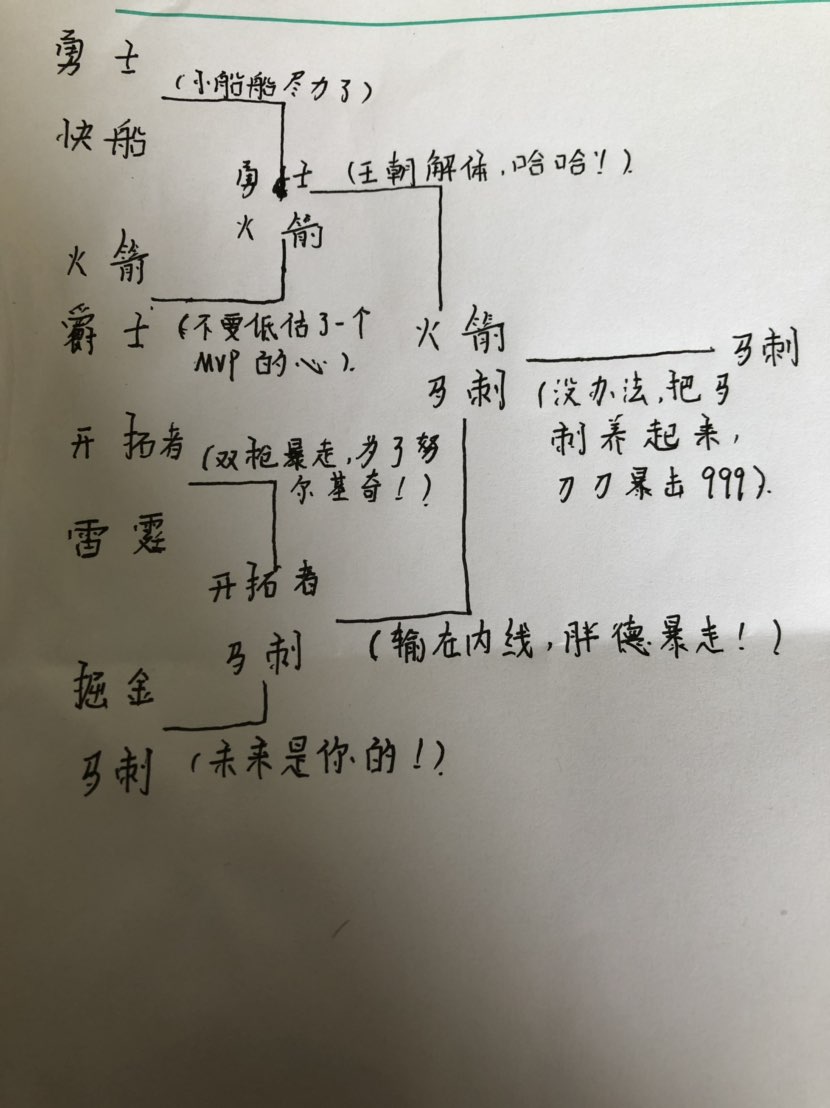 勇士
(小船船尽力了)
快船
勇士 (王朝解体,哈哈!).
火箭
火箭
爵士 (不要低估了一个
MVP的心).
火箭
马刺
马刺 (没办法,把马
刺养起来,
刀刀暴击999).
开拓者 (双枪暴走,为了努
尔基奇!)
雷霆
开拓者
马刺 (输在内线,胖德暴走!)
掘金
马刺 (未来是你的!)